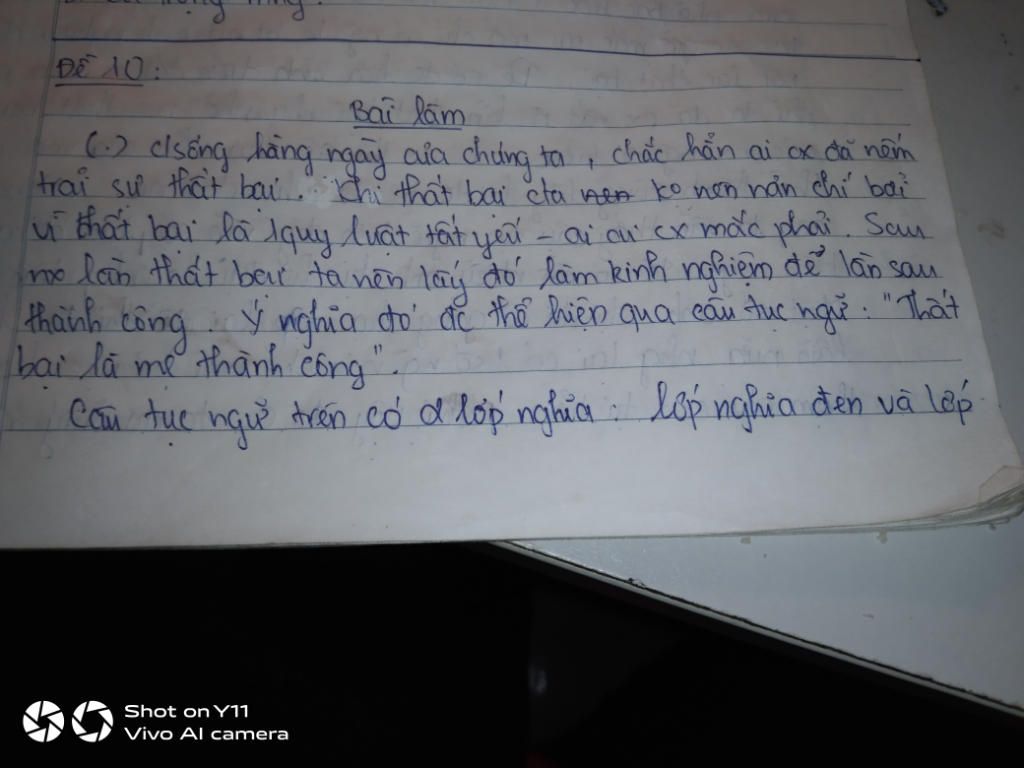 Đề 10:
Bài làm
(.) c/sống hàng ngày của chúng ta, chắc hẳn ai cx đã nếm
trải sự thất bại. Khi thất bại cta nen ko nên nản chí bởi
vì thất bại là 1 quy luật tất yếu - ai ai cx mắc phải. Sau
mỗi lần thất bại ta nên lấy đó làm kinh nghiệm để lần sau
thành công. Ý nghĩa đó đc thể hiện qua câu tục ngữ: "Thất
bại là mẹ thành công".
Câu tục ngữ trên có 2 lớp nghĩa: lớp nghĩa đen và lớp
Shot on Y11
Vivo AI camera